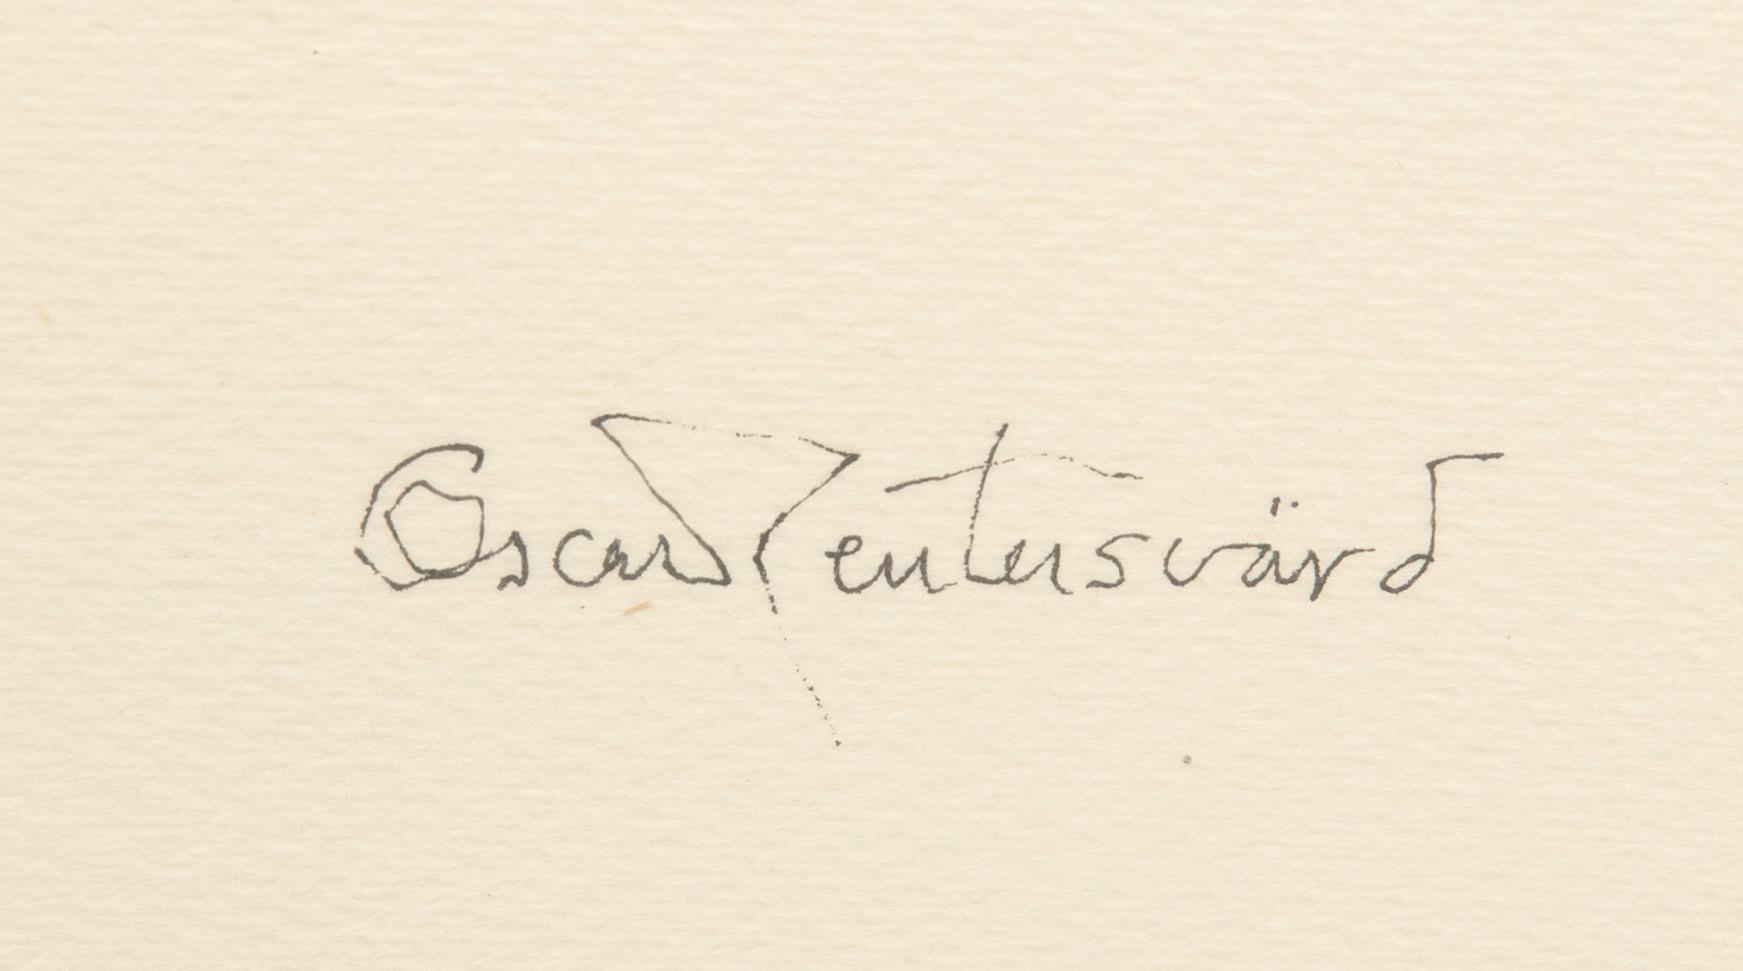 Oscar Reutersvärd